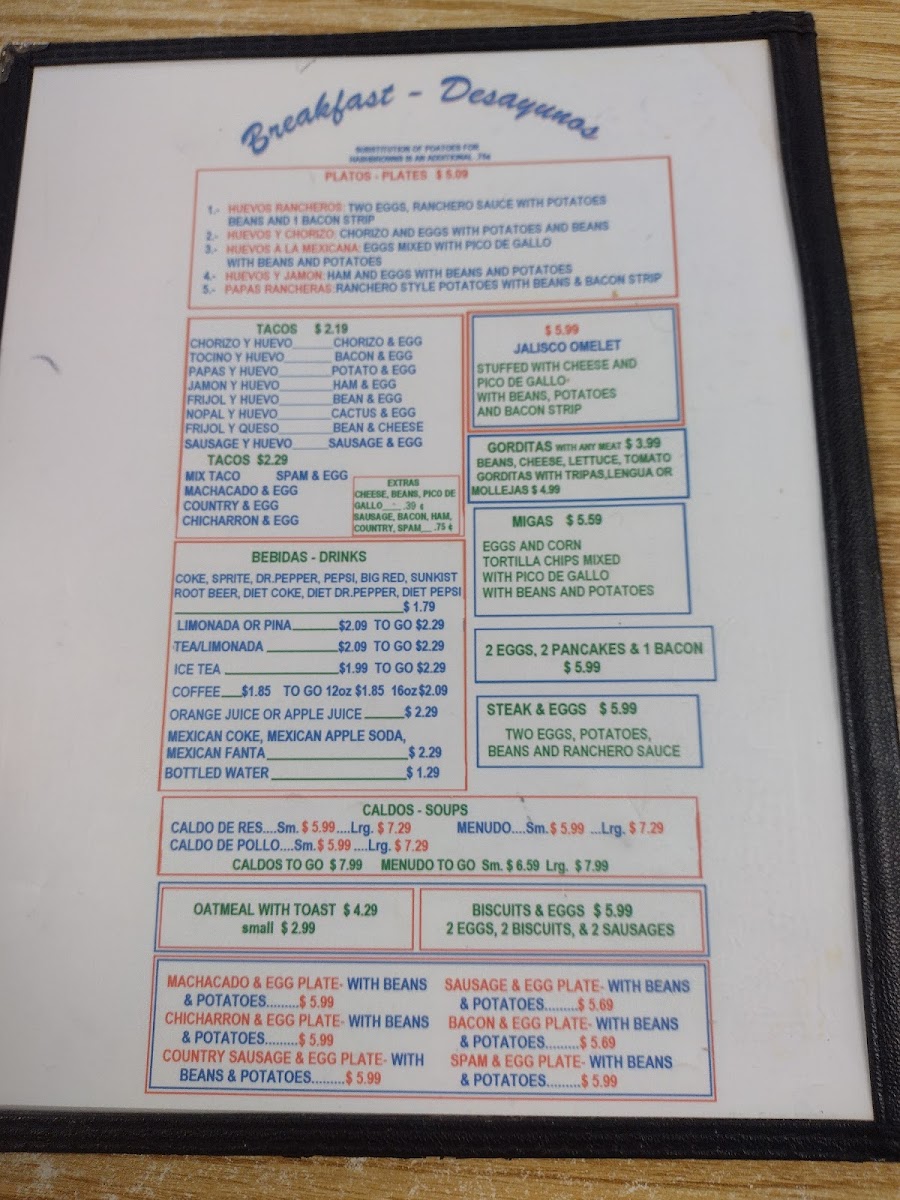 Breakfast - Desayunos
SUBSTITUTION OF POATOES FOR
HASHBROWNS IS AN ADDITIONAL .75¢
PLATOS - PLATES $ 5.09
1.- HUEVOS RANCHEROS: TWO EGGS, RANCHERO SAUCE WITH POTATOES
BEANS AND 1 BACON STRIP
2.- HUEVOS Y CHORIZO: CHORIZO AND EGGS WITH POTATOES AND BEANS
3.- HUEVOS A LA MEXICANA: EGGS MIXED WITH PICO DE GALLO
WITH BEANS AND POTATOES
4.- HUEVOS Y JAMON: HAM AND EGGS WITH BEANS AND POTATOES
5.- PAPAS RANCHERAS: RANCHERO STYLE POTATOES WITH BEANS & BACON STRIP
TACOS $ 2.19
CHORIZO Y HUEVO______CHORIZO & EGG
TOCINO Y HUEVO______BACON & EGG
PAPAS Y HUEVO______POTATO & EGG
JAMON Y HUEVO______HAM & EGG
FRIJOL Y HUEVO______BEAN & EGG
NOPAL Y HUEVO______CACTUS & EGG
FRIJOL Y QUESO______BEAN & CHEESE
SAUSAGE Y HUEVO____SAUSAGE & EGG
TACOS $2.29
MIX TACO SPAM & EGG
MACHACADO & EGG
COUNTRY & EGG
CHICHARRON & EGG
EXTRAS
CHEESE, BEANS, PICO DE
GALLO___ .39 ¢
SAUSAGE, BACON, HAM,
COUNTRY, SPAM__ .75 ¢
$ 5.99
JALISCO OMELET
STUFFED WITH CHEESE AND
PICO DE GALLO-
WITH BEANS, POTATOES
AND BACON STRIP
GORDITAS WITH ANY MEAT $ 3.99
BEANS, CHEESE, LETTUCE, TOMATO
GORDITAS WITH TRIPAS,LENGUA OR
MOLLEJAS $ 4.99
MIGAS $ 5.59
EGGS AND CORN
TORTILLA CHIPS MIXED
WITH PICO DE GALLO
WITH BEANS AND POTATOES
2 EGGS, 2 PANCAKES & 1 BACON
$ 5.99
STEAK & EGGS $ 5.99
TWO EGGS, POTATOES,
BEANS AND RANCHERO SAUCE
BEBIDAS - DRINKS
COKE, SPRITE, DR.PEPPER, PEPSI, BIG RED, SUNKIST
ROOT BEER, DIET COKE, DIET DR.PEPPER, DIET PEPSI
______________________________$ 1.79
LIMONADA OR PINA______$2.09 TO GO $2.29
TEA/LIMONADA _________$2.09 TO GO $2.29
ICE TEA ______________$1.99 TO GO $2.29
COFFEE___$1.85 TO GO 12oz $1.85 16oz $2.09
ORANGE JUICE OR APPLE JUICE _____$ 2.29
MEXICAN COKE, MEXICAN APPLE SODA,
MEXICAN FANTA__________________$ 2.29
BOTTLED WATER _________________$ 1.29
CALDOS - SOUPS
CALDO DE RES....Sm. $ 5.99....Lrg. $ 7.29 MENUDO....Sm. $ 5.99 ...Lrg. $ 7.29
CALDO DE POLLO....Sm. $ 5.99 ....Lrg. $ 7.29
CALDOS TO GO $ 7.99 MENUDO TO GO Sm. $ 6.59 Lrg. $ 7.99
OATMEAL WITH TOAST $ 4.29
small $ 2.99
BISCUITS & EGGS $ 5.99
2 EGGS, 2 BISCUITS, & 2 SAUSAGES
MACHACADO & EGG PLATE- WITH BEANS
& POTATOES.........$ 5.99
CHICHARRON & EGG PLATE- WITH BEANS
& POTATOES.........$ 5.99
COUNTRY SAUSAGE & EGG PLATE- WITH
BEANS & POTATOES.........$ 5.99
SAUSAGE & EGG PLATE- WITH BEANS
& POTATOES.........$ 5.69
BACON & EGG PLATE- WITH BEANS
& POTATOES.........$ 5.69
SPAM & EGG PLATE- WITH BEANS
& POTATOES.........$ 5.99